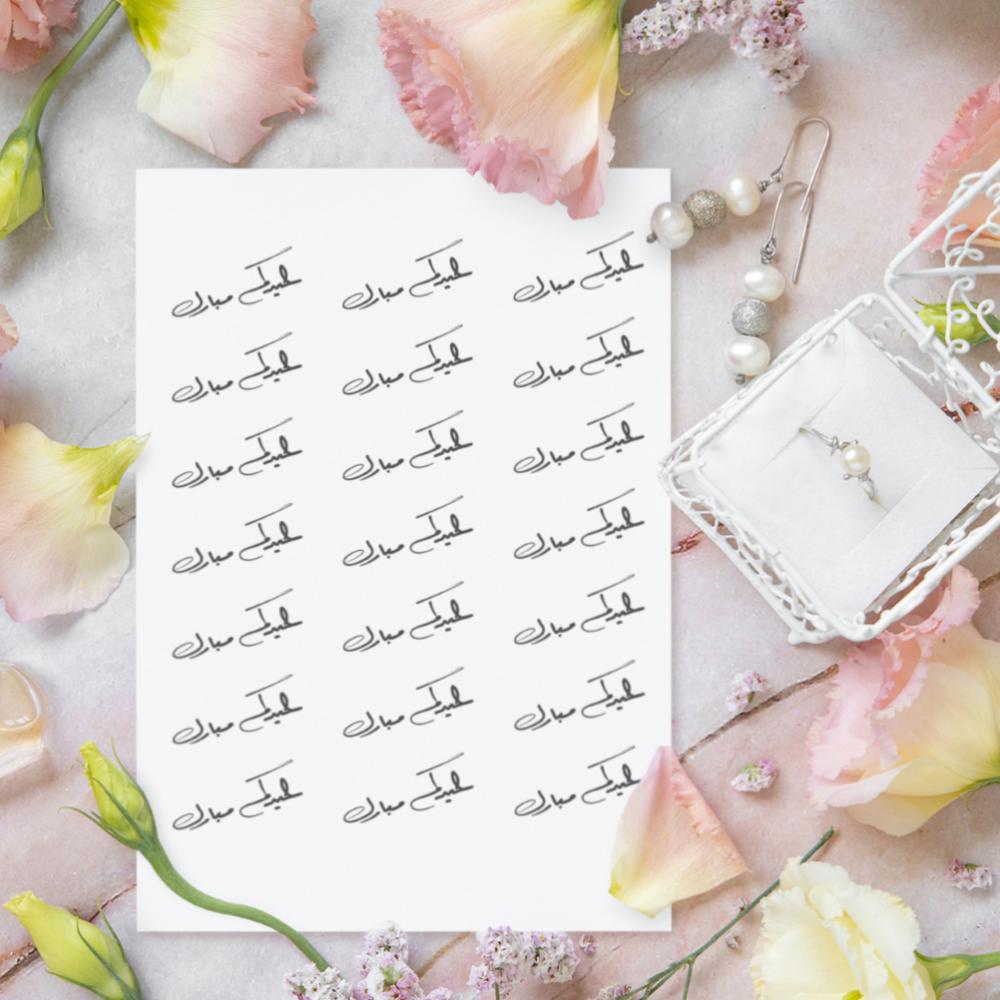 عيدكم مبارك عيدكم مبارك عيدكم مبارك
عيدكم مبارك عيدكم مبارك عيدكم مبارك
عيدكم مبارك عيدكم مبارك عيدكم مبارك
عيدكم مبارك عيدكم مبارك عيدكم مبارك
عيدكم مبارك عيدكم مبارك عيدكم مبارك
عيدكم مبارك عيدكم مبارك عيدكم مبارك
عيدكم مبارك عيدكم مبارك عيدكم مبارك